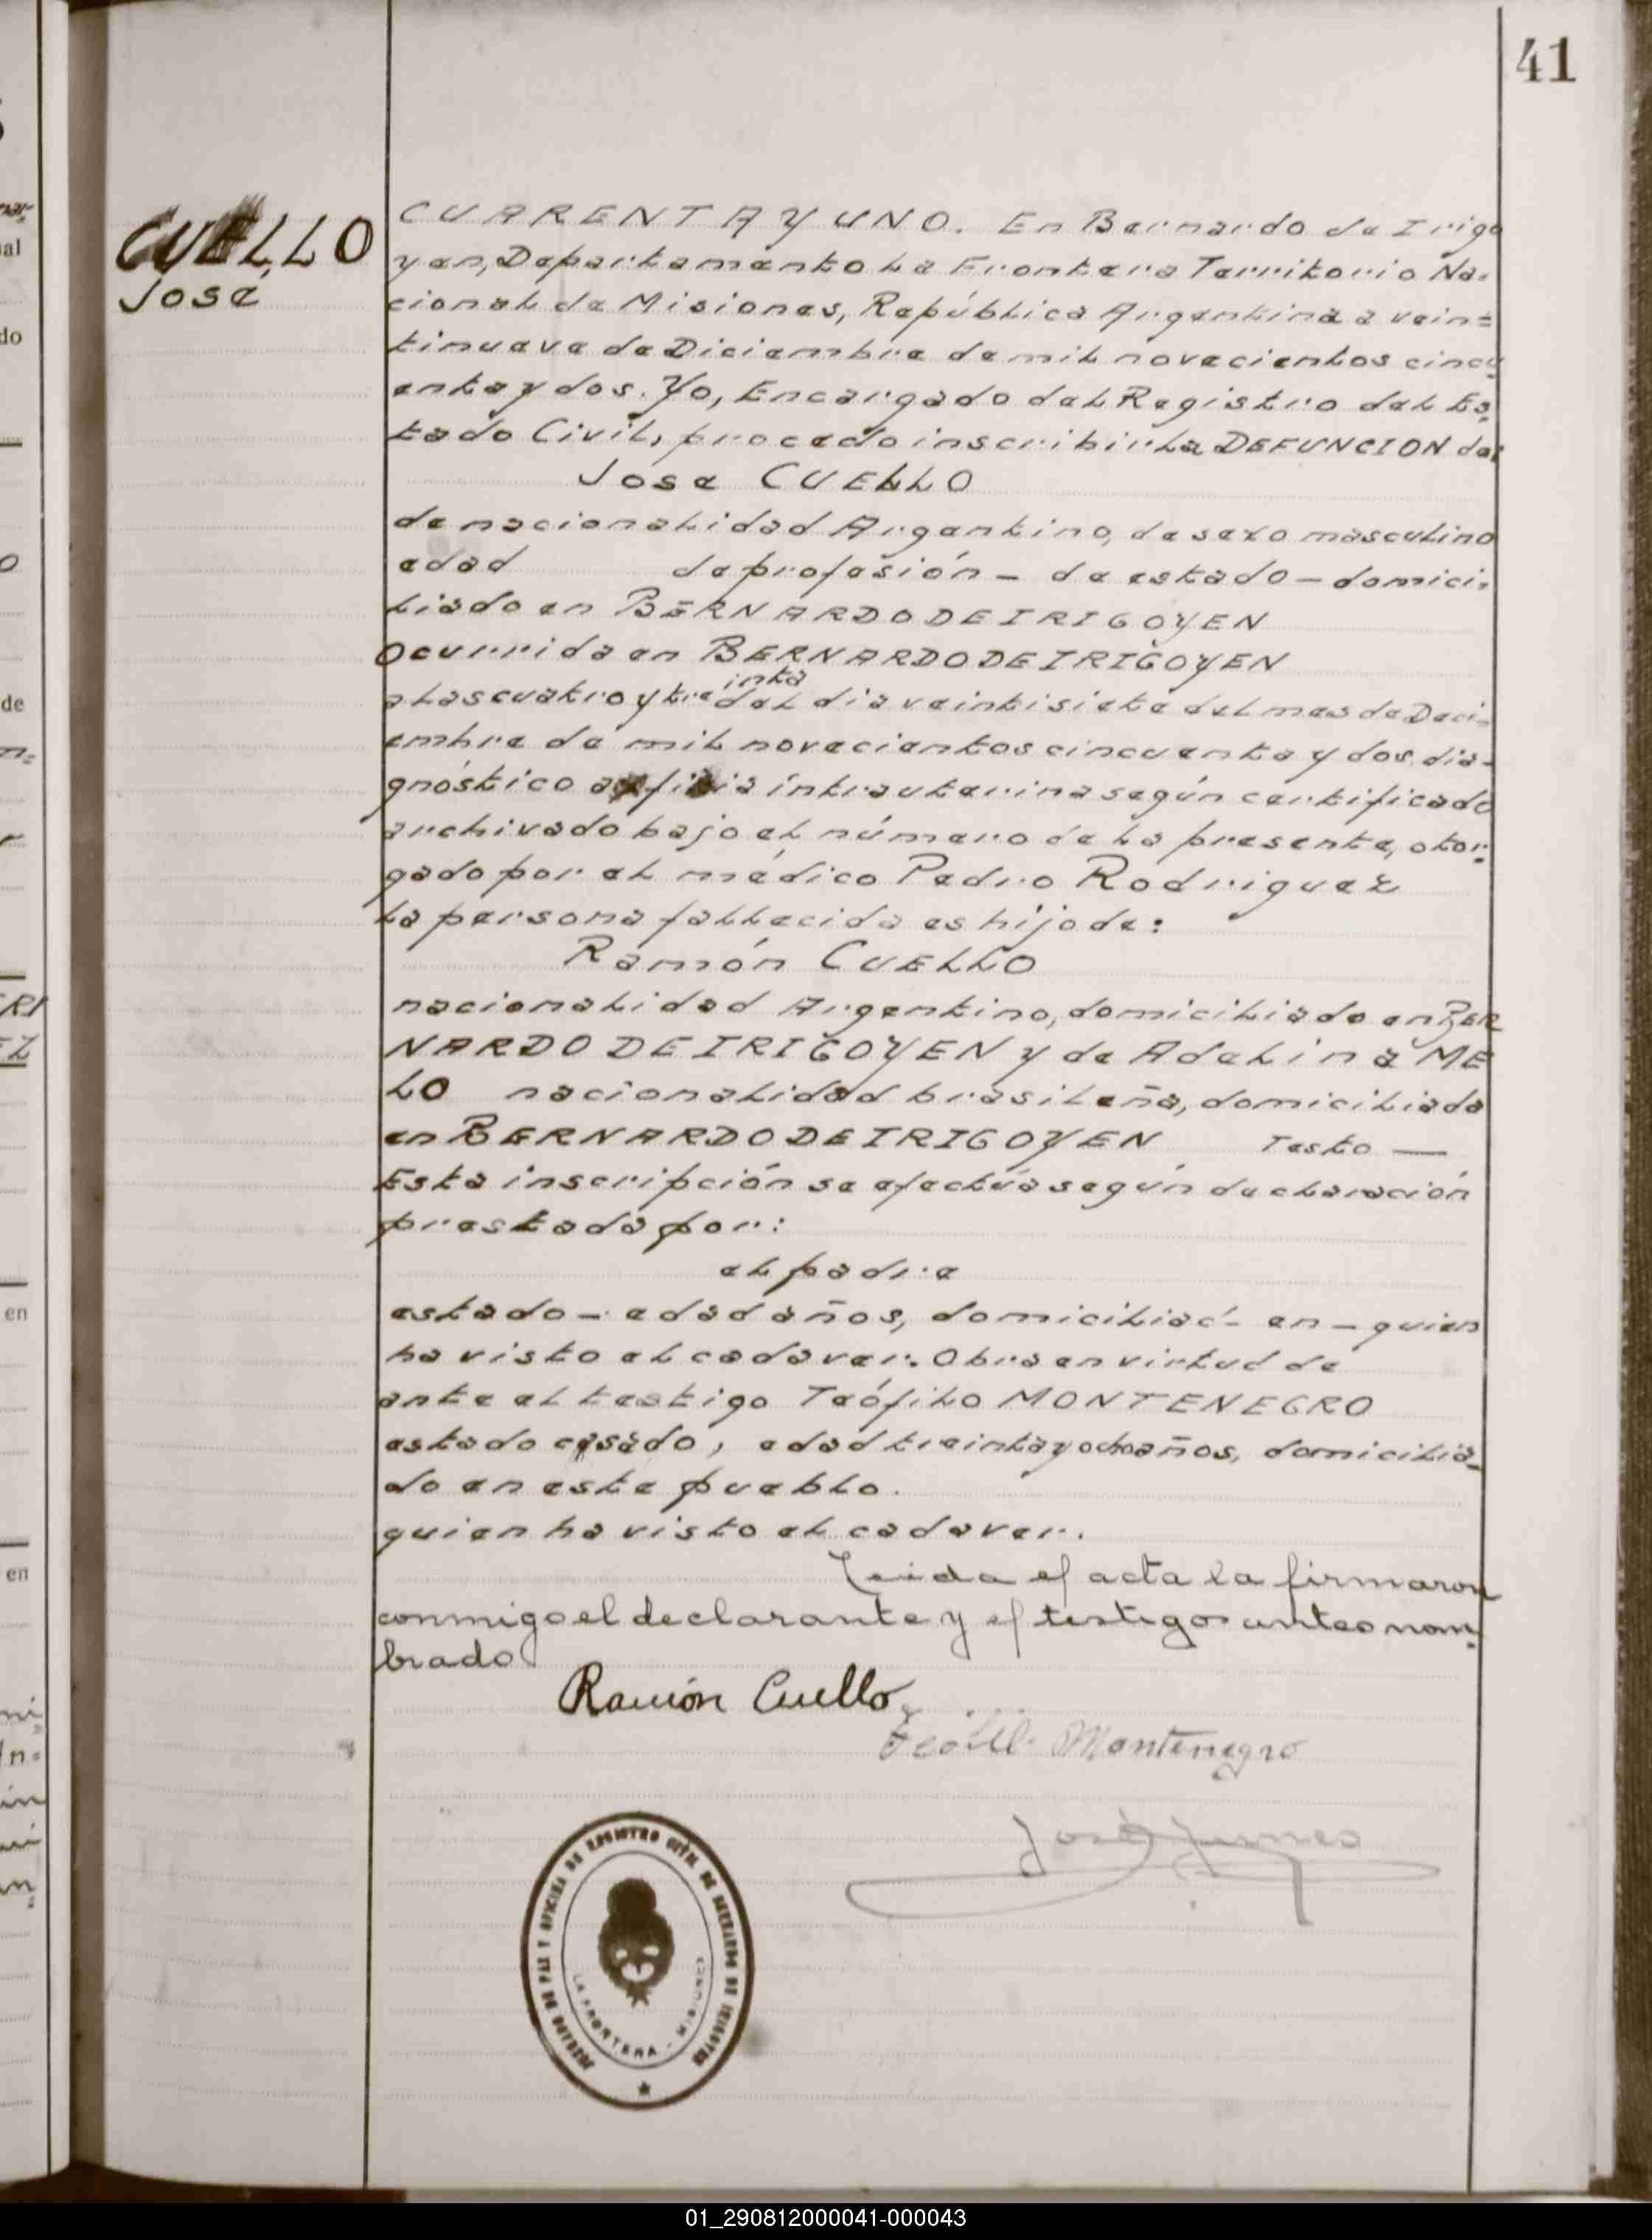 41
CUELLO
José
CUARENTA Y UNO. En Bernardo de Irigo
yen, Departamento La Frontera Territorio Na-
cional de Misiones, República Argentina a vein=
tinueve de Diciembre de mil novecientos cincu
enta y dos. Yo, Encargado del Registro del Es
tado Civil, procedo inscribir la DEFUNCION de:
Jose CUELLO
de nacionalidad Argentino, de sexo masculino
edad de profesión - de estado - domici-
liado en BERNARDO DE IRIGOYEN
Ocurrida en BERNARDO DE IRIGOYEN
a las cuatro y treinta del dia veintisiete del mes de Deci-
embre de mil novecientos cincuenta y dos. dia-
gnóstico asfixia intrauterina según certificado
archivado bajo el número de la presente, otor-
gado por el médico Pedro Rodriguez
La persona fallecida es hijo de:
Ramón CUELLO
nacionalidad Argentino, domiciliado en BER
NARDO DE IRIGOYEN y de Adelina ME
LO nacionalidad brasileña, domiciliada
en BERNARDO DE IRIGOYEN Testo —
Esta inscripción se efectúa según declaración
prestada por:
el padre
estado - edad años, domiciliad- en - quien
ha visto el cadaver. Obra en virtud de
ante el testigo Teófilo MONTENEGRO
estado casado, edad treinta y ocho años, domicilia-
do en este pueblo.
quien ha visto el cadaver.
Leida el acta la firmaron
conmigo el declarante y el testigo antes nom-
brado
Ramón Cuello
Teofil. Montenegro
José
JUZGADO DE PAZ Y OFICINA DE REGISTRO CIVIL DE BERNARDO DE IRIGOYEN
LA FRONTERA - MISIONES
nar-
al
do
de
ERI
EZ
en
en
01_290812000041-000043